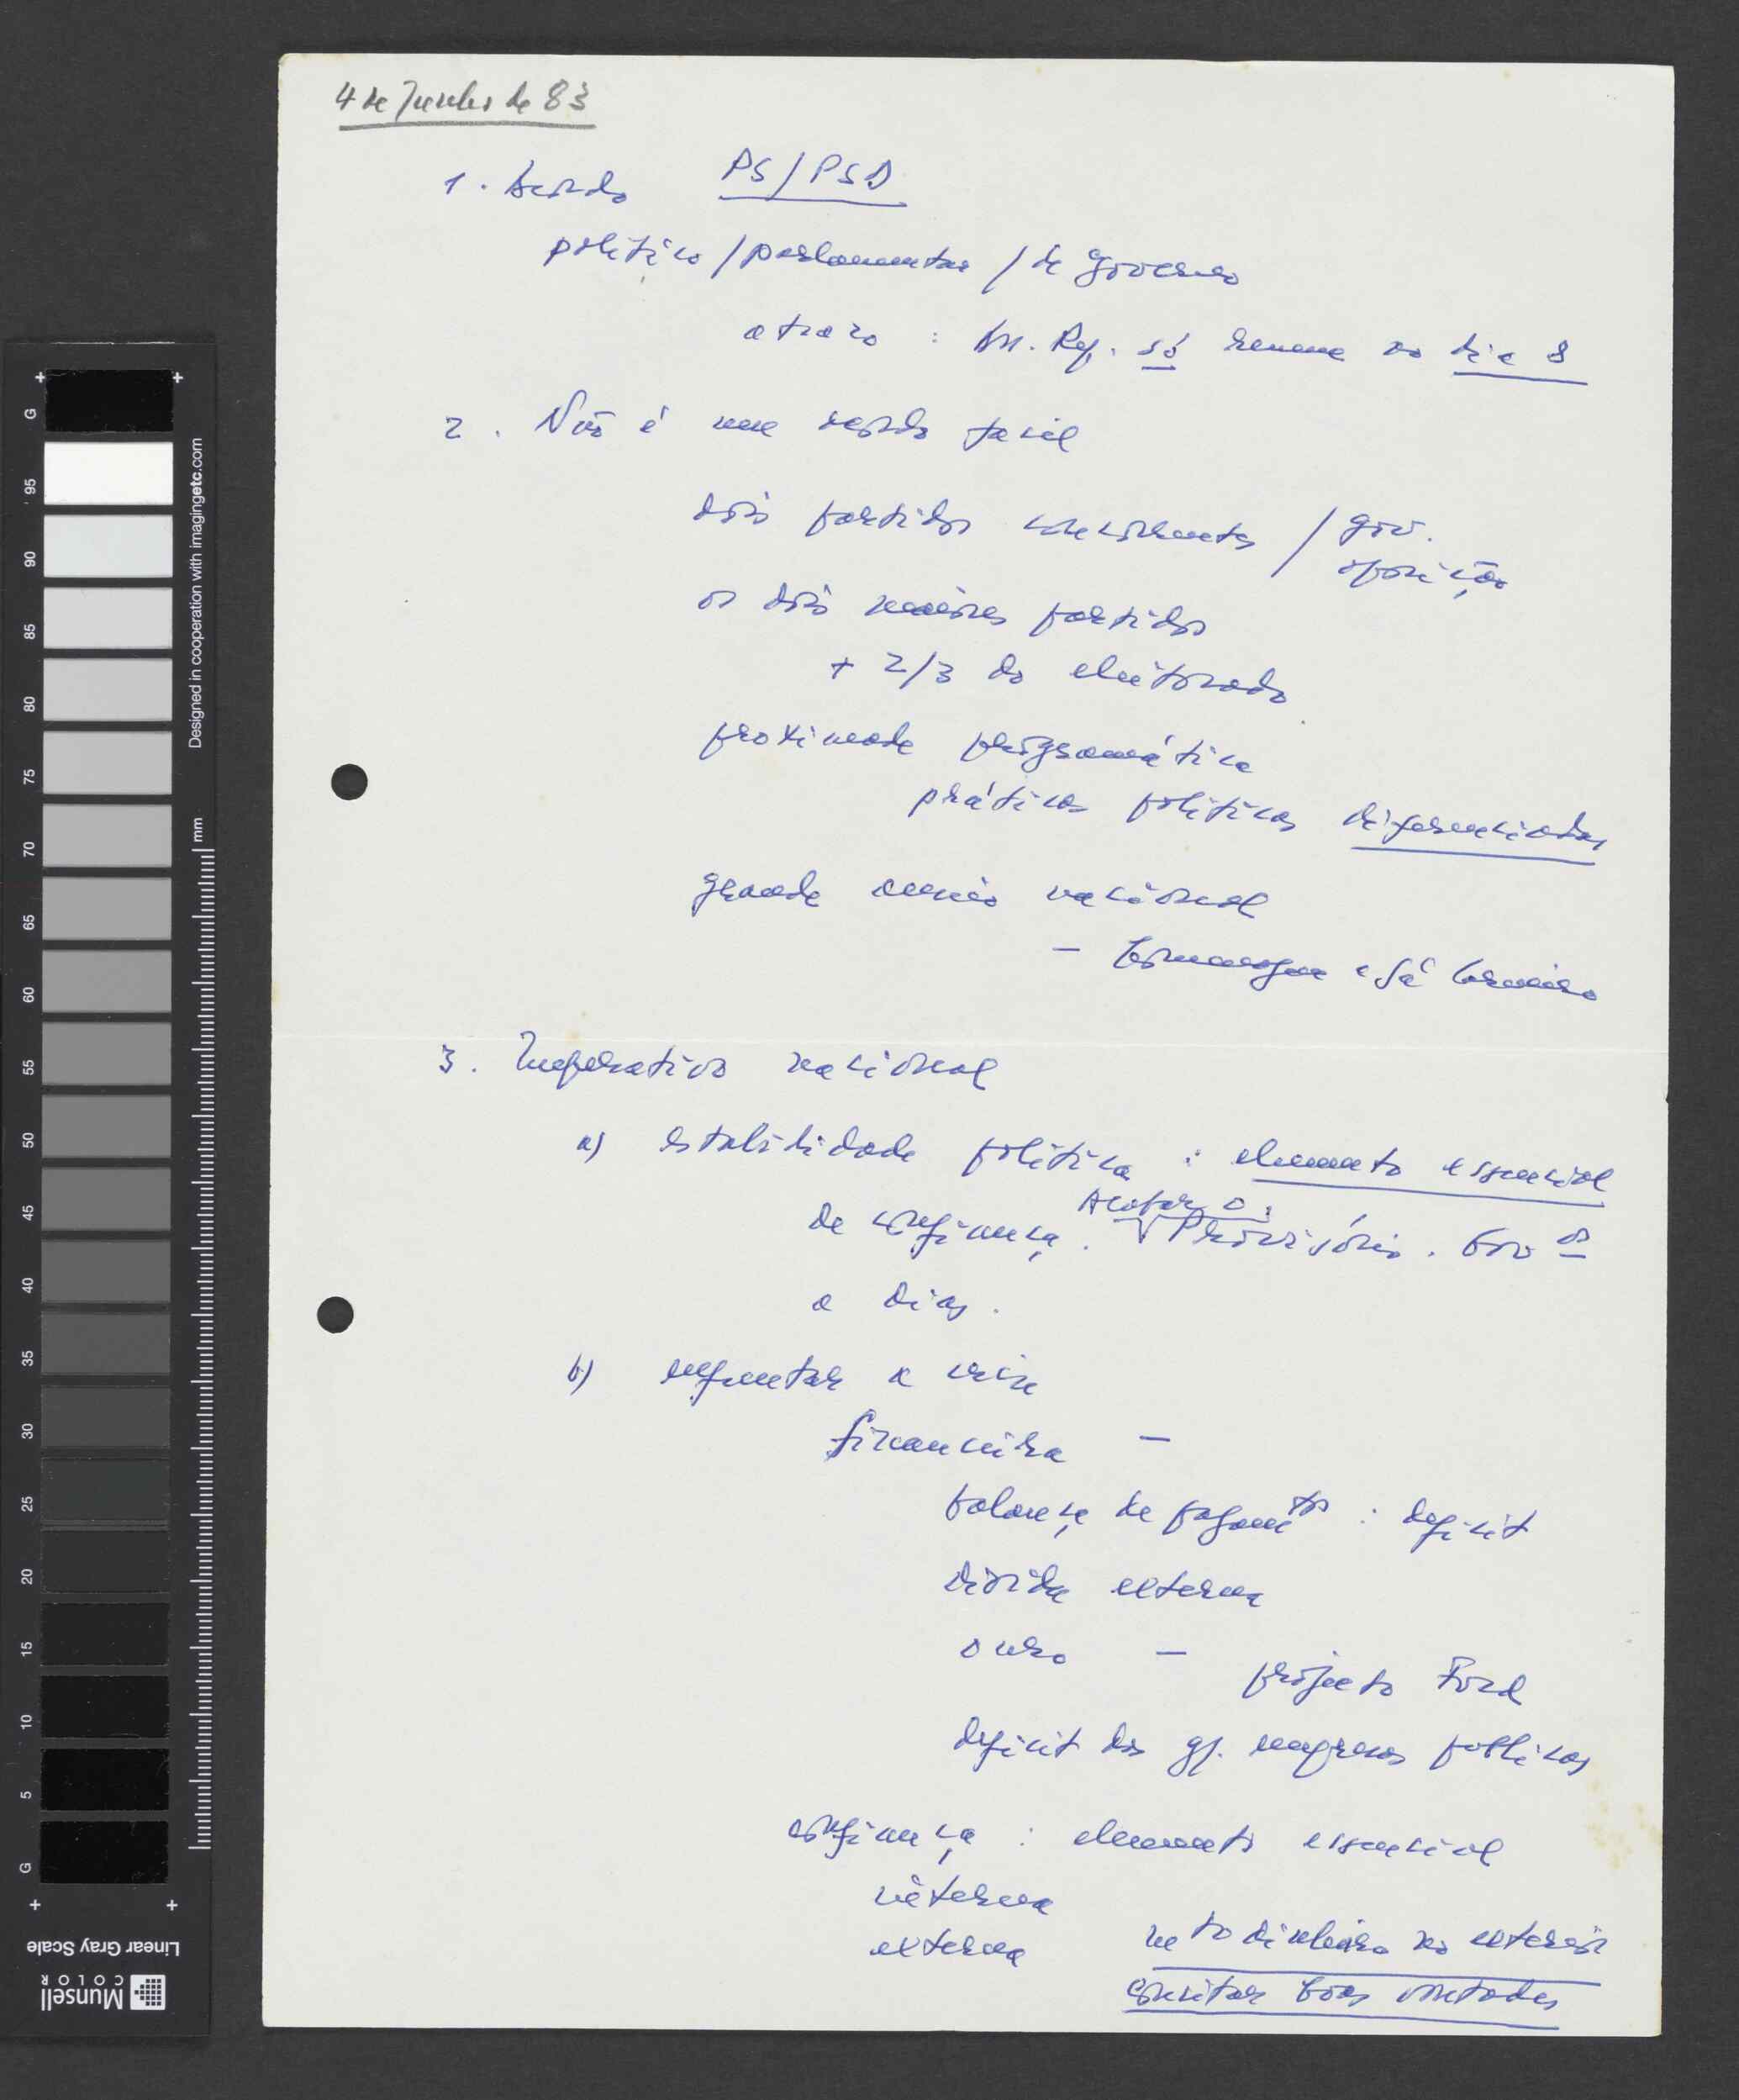 4 de Junho de 83
1. Acordo PS/PSD
político / parlamentar / de governo
atrazo : Ass. Rep. só reune no dia 8
2. Não é um acordo facil
dois partidos concorrentes / gov.
oposição
os dois maiores partidos
+ 2/3 do eleitorado
proximade programática
práticas politicas diferenciadas
grande união nacional
- e Sá Carneiro
3. Imperativo nacional
a) estabilidade politica : elemento essencial
Acabar o
de confiança. Provisório. Gov os
a dias.
b) enfrentar a crise
financeira -
balança de pagam tos : deficit
divida externa
ouro - projecto Ford
deficit das gr. empresas publicas
confiança : elemento essencial
interna
externa
mto dinheiro no exterior
concitar boas vontades
95 90 85 80 75 70 65 60 55 50 45 40 35 30 25 20 15 10 5
G
G
mm
Designed in cooperation with imagingetc.com
Linear Gray Scale
Munsell
COLOR